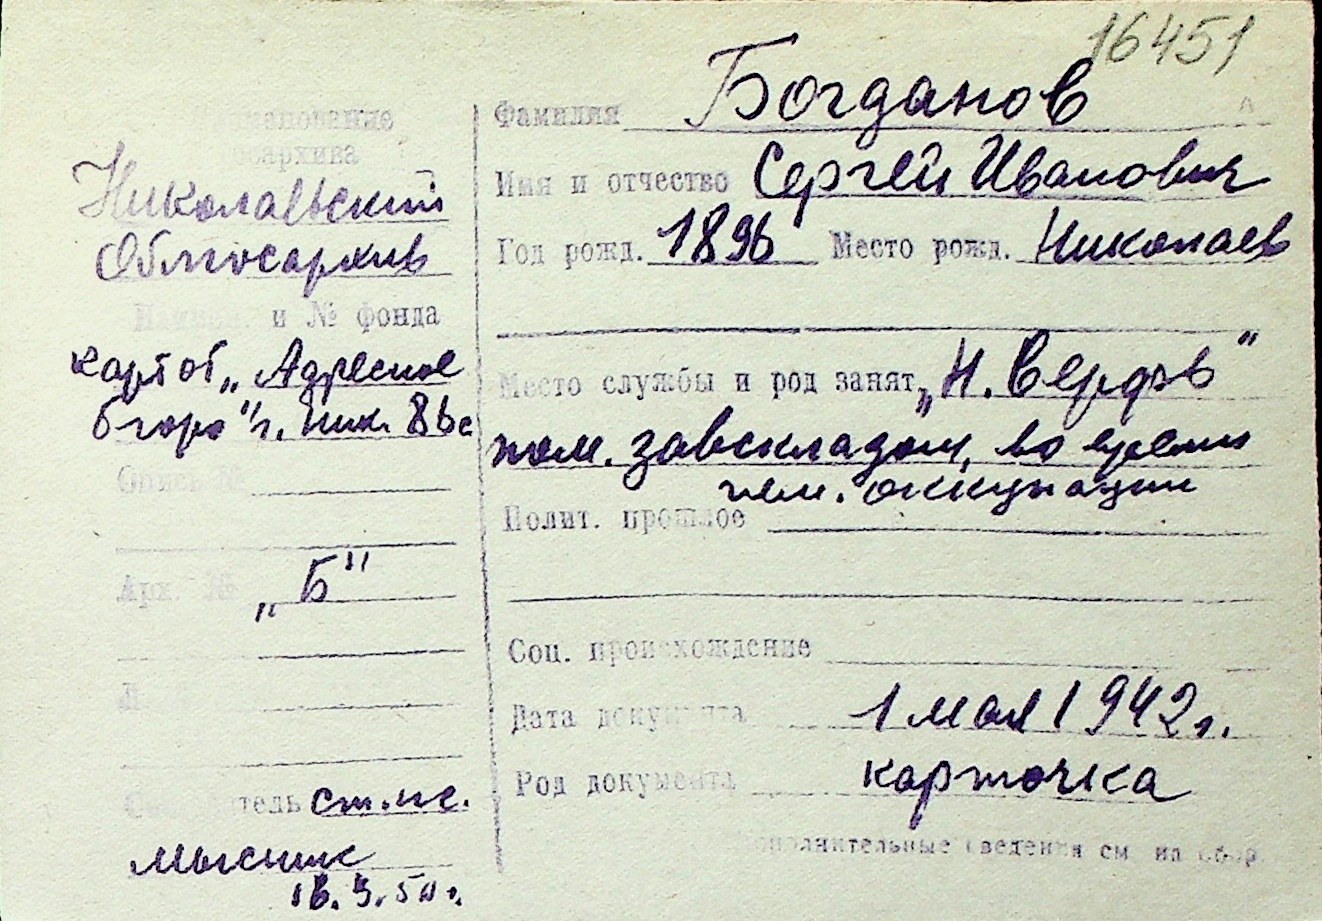 16451
Фамилия Богданов
Имя и отчество Сергей Иванович
Год рожд. 1896 Место рожд. Николаев
Место службы и род занят. „Н. Верфь"
пом. завскладом, во время
нем. оккупации
Полит. прошлое
Соц. происхождение
Дата документа 1 мая 1942 г.
Род документа карточка
Дополнительные сведения см. на обор.
Николаевский
Облгосархив
и № фонда
картот „Адресное
бюро" г. Ник.
Опись №
Арх. № „Б"
Составитель